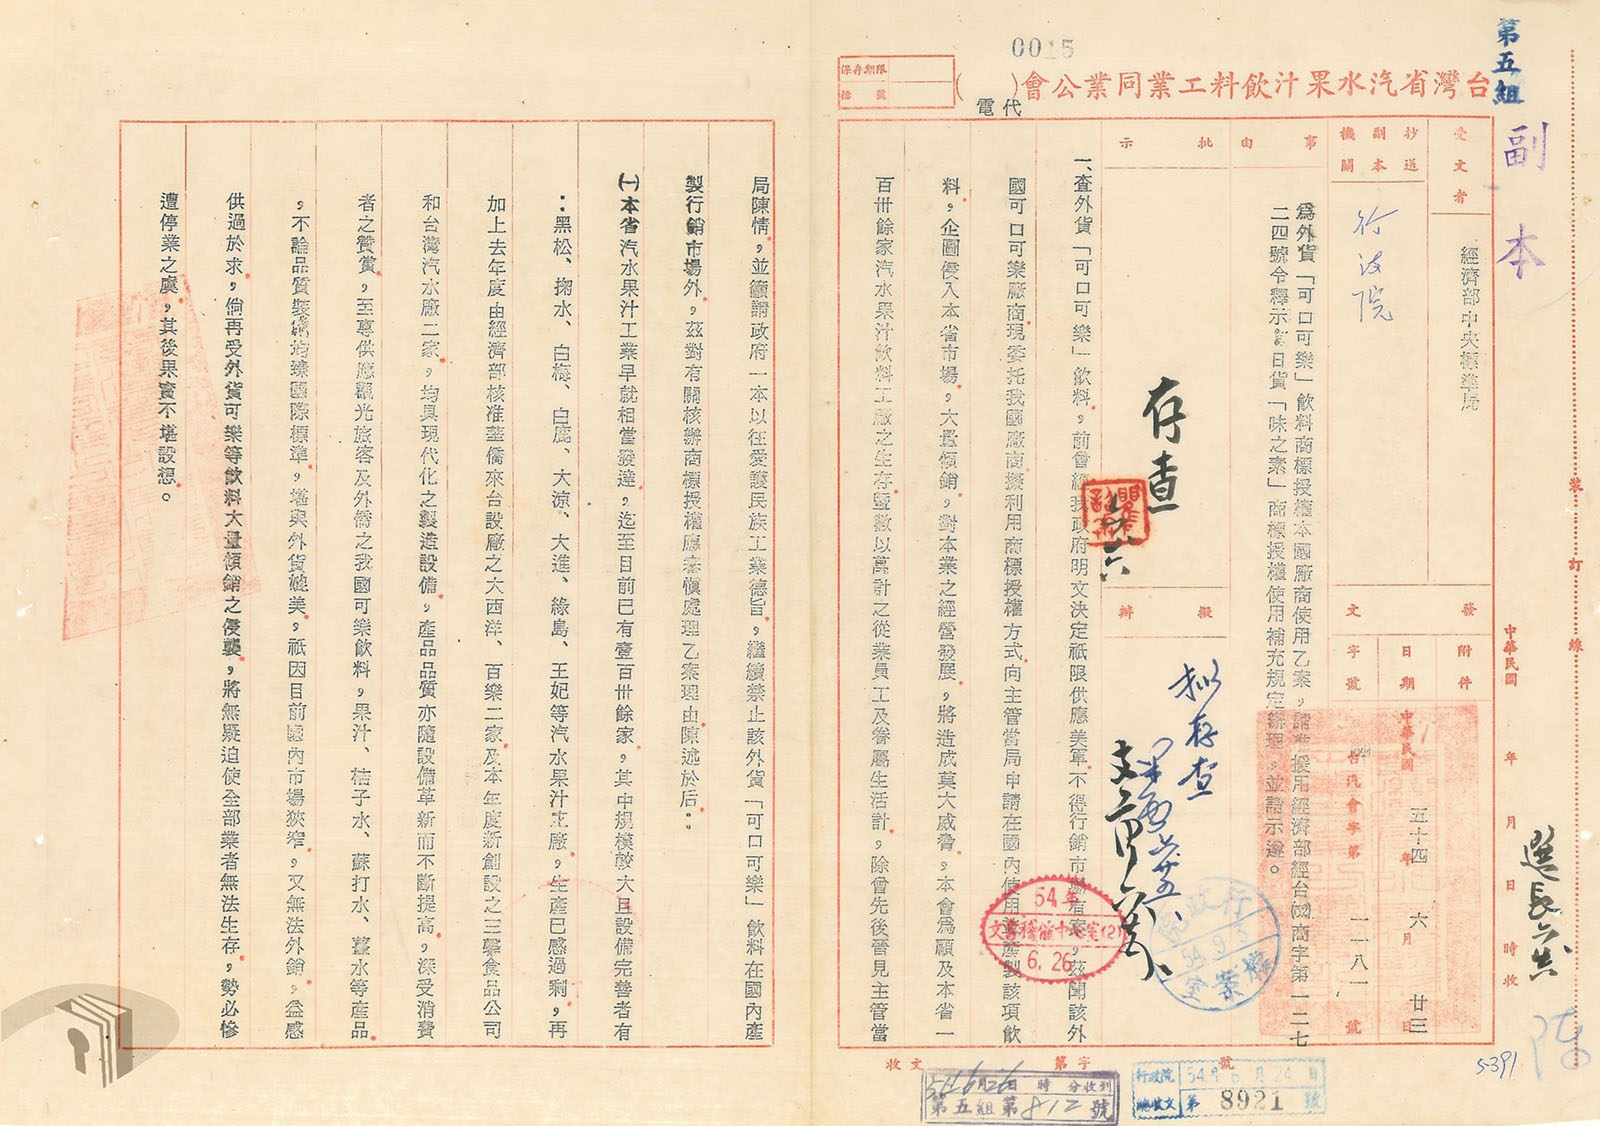 0015
第五組
副本
台灣省汽水果汁飲料工業同業公會（　）
代電
保存期限
檔號
受文者
經濟部中央標準局
抄送副本機關
行政院
發文
附件
日期
中華民國五十四年六月廿三日
字號
台汽會字第一一八一號
事由
為外貨「可口可樂」飲料商標授權本國廠商使用乙案，請援用經濟部經台(52)商字第一二七
二四號令釋示日貨「味之素」商標授權使用補充規定辦理，並請示遵。
批示
存查
擬辦
擬存查
一、查外貨「可口可樂」飲料，前曾經我政府明文決定祇限供應美軍不得行銷市場有案，茲聞該外
國可口可樂廠商現委托我國廠商擬利用商標授權方式向主管當局申請在國內使用並產製該項飲
料，企圖侵入本省市場，大量傾銷，對本業之經營發展，將造成莫大威脅，本會為顧及本省一
百卅餘家汽水果汁飲料工廠之生存暨數以萬計之從業員工及眷屬生活計，除曾先後晉見主管當
局陳情，並籲請政府一本以往愛護民族工業德旨，繼續禁止該外貨「可口可樂」飲料在國內產
製行銷市場外，茲對有關核辦商標授權應審慎處理乙案理由陳述於后：
(一)本省汽水果汁工業早就相當發達，迄至目前已有壹百卅餘家，其中規模較大且設備完善者有
：黑松、掬水、白梅、白鹿、大涼、大進、綠島、王妃等汽水果汁工廠，生產已感過剩，再
加上去年度由經濟部核准華僑來台設廠之大西洋、百樂二家及本年度新創設之三馨食品公司
和台灣汽水廠二家，均具現代化之製造設備，產品品質亦隨設備革新而不斷提高，深受消費
者之贊賞，至專供應觀光旅客及外僑之我國可樂飲料，果汁、桔子水、蘇打水、薑水等產品
，不論品質裝備均臻國際標準，堪與外貨媲美，祇因目前國內市場狹窄，又無法外銷，益感
供過於求，倘再受外貨可樂等飲料大量傾銷之侵襲，將無疑迫使全部業者無法生存，勢必慘
遭停業之虞，其後果實不堪設想。
裝訂線
中華民國　年　月　日　時收
收文　字第　號
54年
6.26
行政院
54.9.3
檔案室
54年6月26日　時　分收到
第五組第812號
行政院
54年6月24日
總收文
第8921號
5391
陳